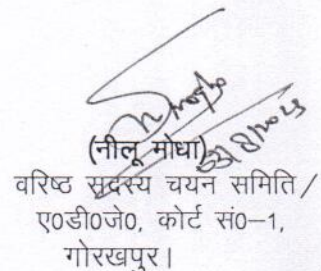 (नीलू मोघा)
वरिष्ठ सदस्य चयन समिति /
ए०डी०जे०, कोर्ट सं०–1,
गोरखपुर।